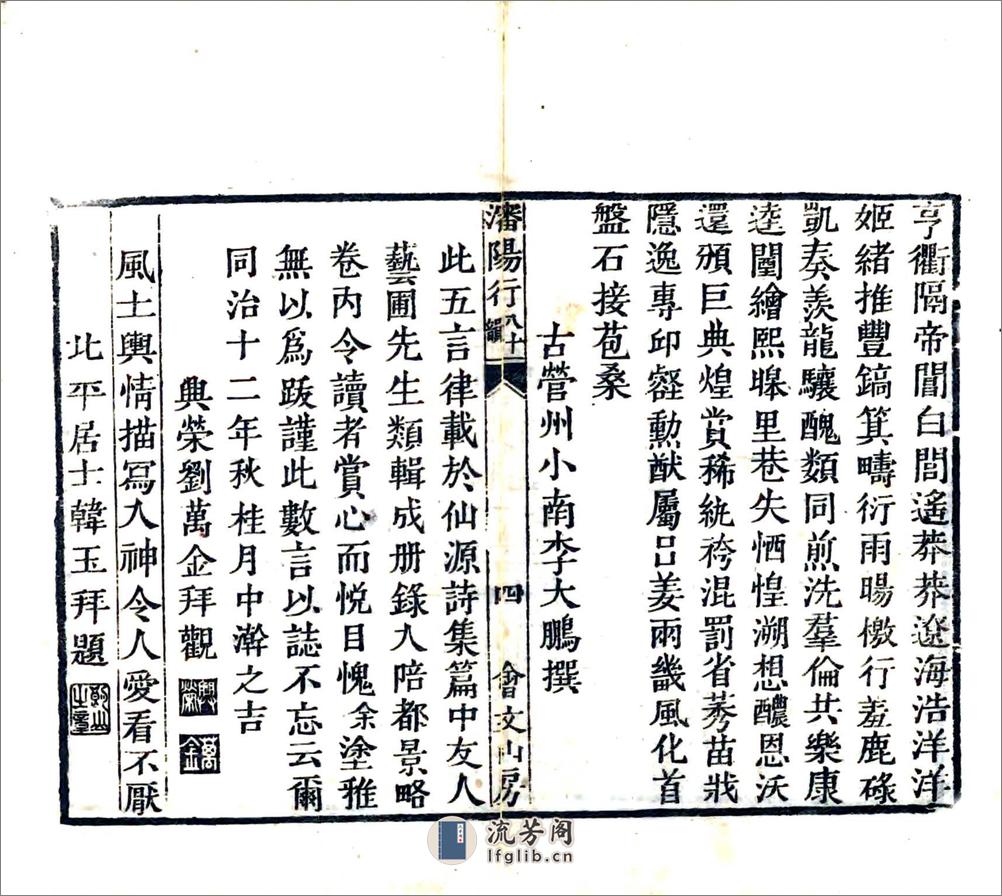 亨衢隔帝閽白閭遙莽莽遼海浩洋洋
姬緒推豐鎬箕疇衍雨暘檄行羞鹿碌
凱奏羨龍驤醜類同煎洗羣倫共樂康
逵闉繪熙皞里巷失恓惶溯想醲恩沃
還頒巨典煌賞稀紈袴混罰省莠苗戕
隱逸專邱壑勳猷屬呂姜兩畿風化首
盤石接苞桑
古營州小南李大鵬撰
瀋陽行八十韻
四
會文山房
此五言律載於仙源詩集篇中友人
藝圃先生類輯成册錄入陪都景略
卷內令讀者賞心而悅目愧余塗雅
無以爲跋謹此數言以誌不忘云爾
同治十二年秋桂月中澣之吉
興榮劉萬金拜觀
興榮
萬金
風土輿情描寫入神令人愛看不厭
北平居士韓玉拜題
流芳阁
lfglib.cn